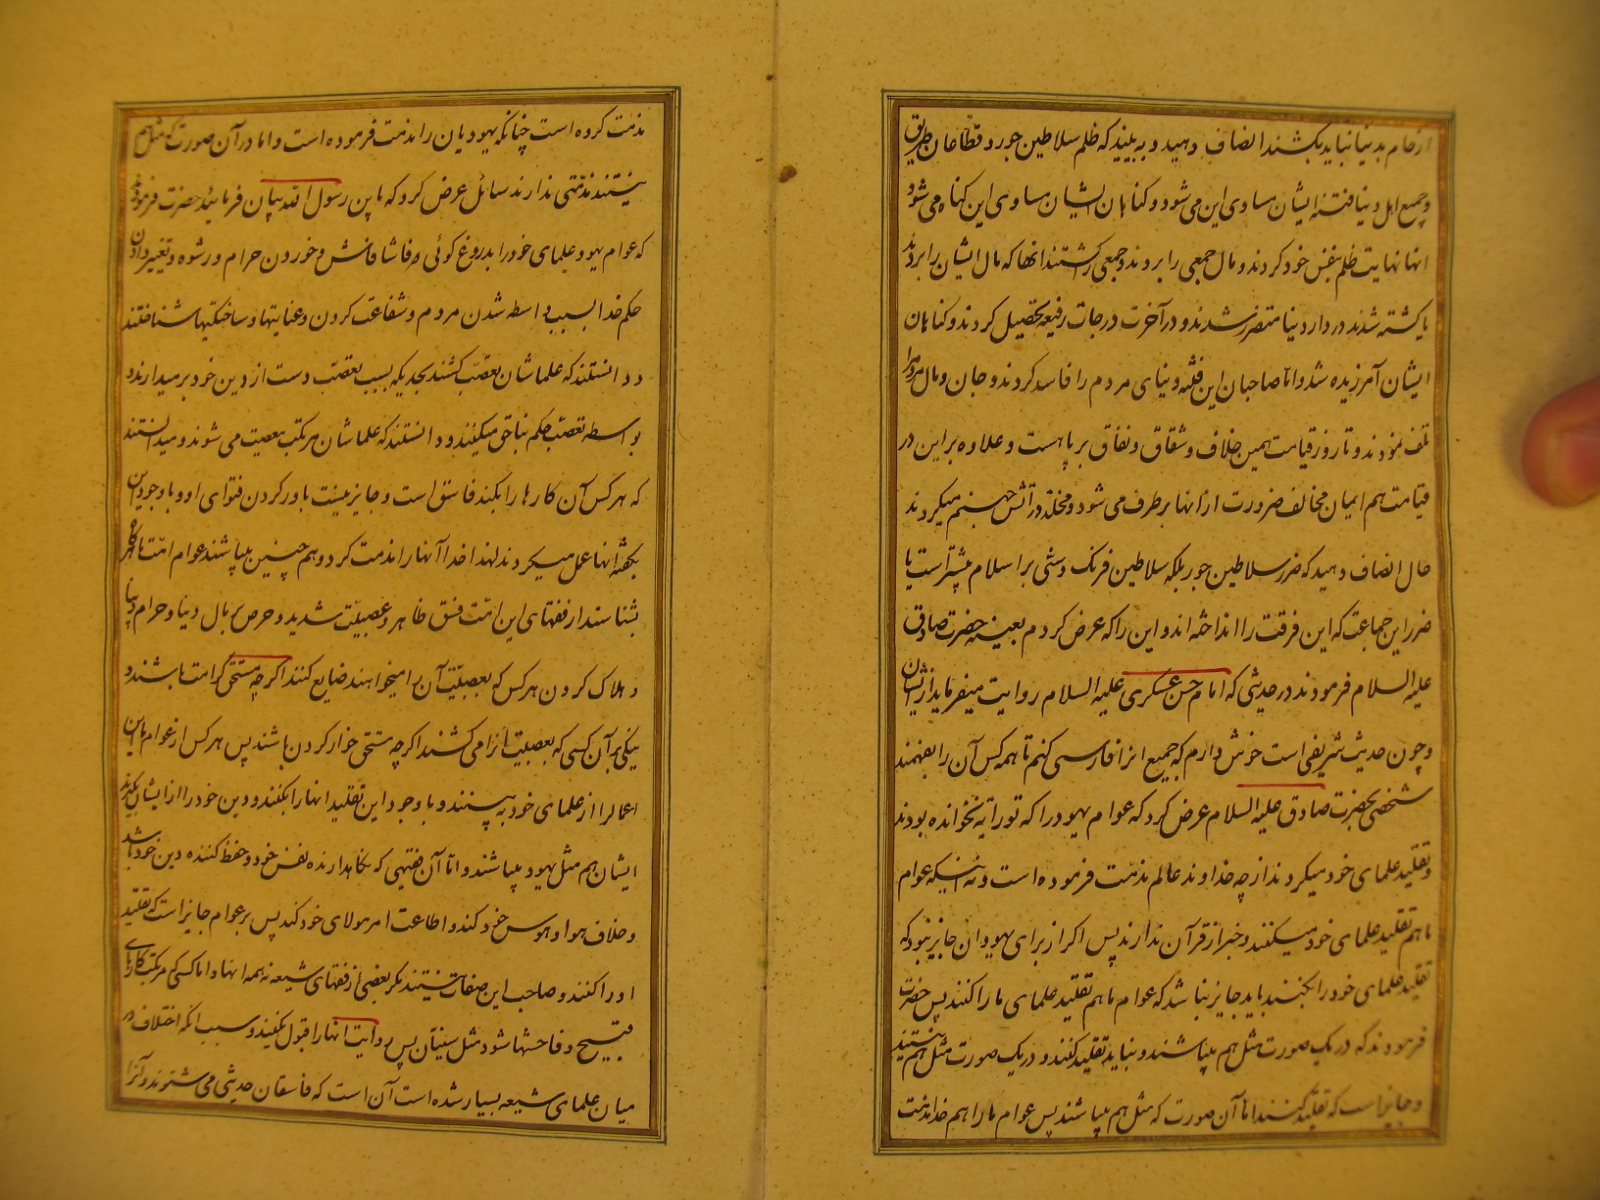 ازخام بدنیا نباید بکشند انصاف دهید و به بینید که ظلم سلاطین جور و قطاعان طریق
و جمیع اهل دنیا فتنهٔ ایشان مساوی این می شود و کناهان ایشان مساوی این کناه می شود
انها نهایت ظلم بنفس خود کردند و مال جمعی را بردند و جمعی را کشتند انها که مال ایشان را بردند
یا کشته شدند در دار دنیا متضرر شدند و در آخرت درجات رفیعه تحصیل کردند و کناهان
ایشان آمرزیده شد و امّا صاحبان این فتنه دنیای مردم را فاسد کردند و جان و مال
تلف نمودند و تا روز قیامت همین خلاف و شقاق و نفاق برپاهست و علاوه بر این در
قیامت هم ایمان مخالف ضرورت از انها برطرف می شود و مخلد در آتش جهنم میکردند
حال انصاف دهید که ضرر سلاطین جور بلکه سلاطین فرنک و شتی بر اسلام بیشتر است یا
ضرر این جماعت که این فرقت را انداخته اند و این را که عرض کردم بعینه حضرت صادق
علیه السلام فرمودند در حدیثی که امام حسن عسکری علیه السلام روایت میفرماید از ایشان
و چون حدیث شریفی است خوش دارم که جمیع انرا فارسی کنم تا همه کس آن را بفهمند
شخصی بحضرت صادق علیه السلام عرض کرد که عوام یهود را که توراة نخوانده بودند
و تقلید علمای خود میکردند از چه خداوند عالم مذمت فرموده است و نه اینکه عوام
ما هم تقلید علمای خود میکنند و خبر از قرآن ندارند پس اکر از برای یهودان جایز نبود که
تقلید علمای خود را بکنند باید جایز نباشد که عوام ما هم تقلید علمای ما را کنند پس حضرت
فرمودند که در یک صورت مثل هم میباشند و نباید تقلید کنند و در یک صورت مثل هم نیستند
و جایز است که تقلید کنند اما آن صورت که مثل هم میباشند پس عوام ما را هم خدا مذمت
مذمت کرده است چنانکه یهودیان را مذمت فرموده است و اما در آن صورت که مثل هم
نیستند مذمتی ندارند سائل عرض کرد که یا بن رسول الله بیان فرمائید حضرت فرمودند
که عوام یهود علمای خود را بدروغ کوئی فاشافاش و خوردن حرام و رشوه و تغییر دادن
حکم خدا بسبب واسطه شدن مردم و شفاعت کردن و عنایتها و ساختکیها شناختند
و دانستند که علماشان تعصّب کشند بحدیکه بسبب تعصّب دست از دین خود برمیدارند و
بواسطه تعصّب حکم بناحق میکنند و دانستند که علماشان مرتکب معصیت می شوند و میدانستند
که هر کس آن کارها را بکند فاسق است و جایز نیست باور کردن فتوای او و با وجود این
بکفتهٔ انها عمل میکردند لهذا خدا آنها را مذمت کرد و هم چنین میباشند عوام امّت ما که هرکاه
بشناسند از فقهای این امّت فسق ظاهر و عصبیّت شدید و حرص بر مال دنیا و حرام دنیا
و هلاک کردن هر کس که بعصبیّت آن را میخواهند ضایع کنند اکر چه مستحق کرامت باشند و
نیکی بر آن کسی که بعصبیت انرا می کشند اکرچه مستحق خوار کردن باشند پس هر کس از عوام ما این
اعمال را از علمای خود به بینند و با وجود این تقلید انها را بکنند و دین خود را از ایشان بکیرند
ایشان هم مثل یهود میباشند و امّا آن فقیهی که نکاهدارنده نفس خود و حفظ کننده دین خود باشد
و خلاف هوا و هوس خود کند و اطاعت امر مولای خود کند پس بر عوام جایز است که تقلید
او را کنند و صاحب این صفات نیستند مکر بعضی از فقهای شیعه نه همه انها و اما کسی که مرتکب کارهای
قبیح و فاحشها شود مثل سنّیان پس روایت انها را قبول مکنید و سبب انکه اختلاف در
میان علمای شیعه بسیار شده است آن است که فاسقان حدیثی می شنوند و آنرا